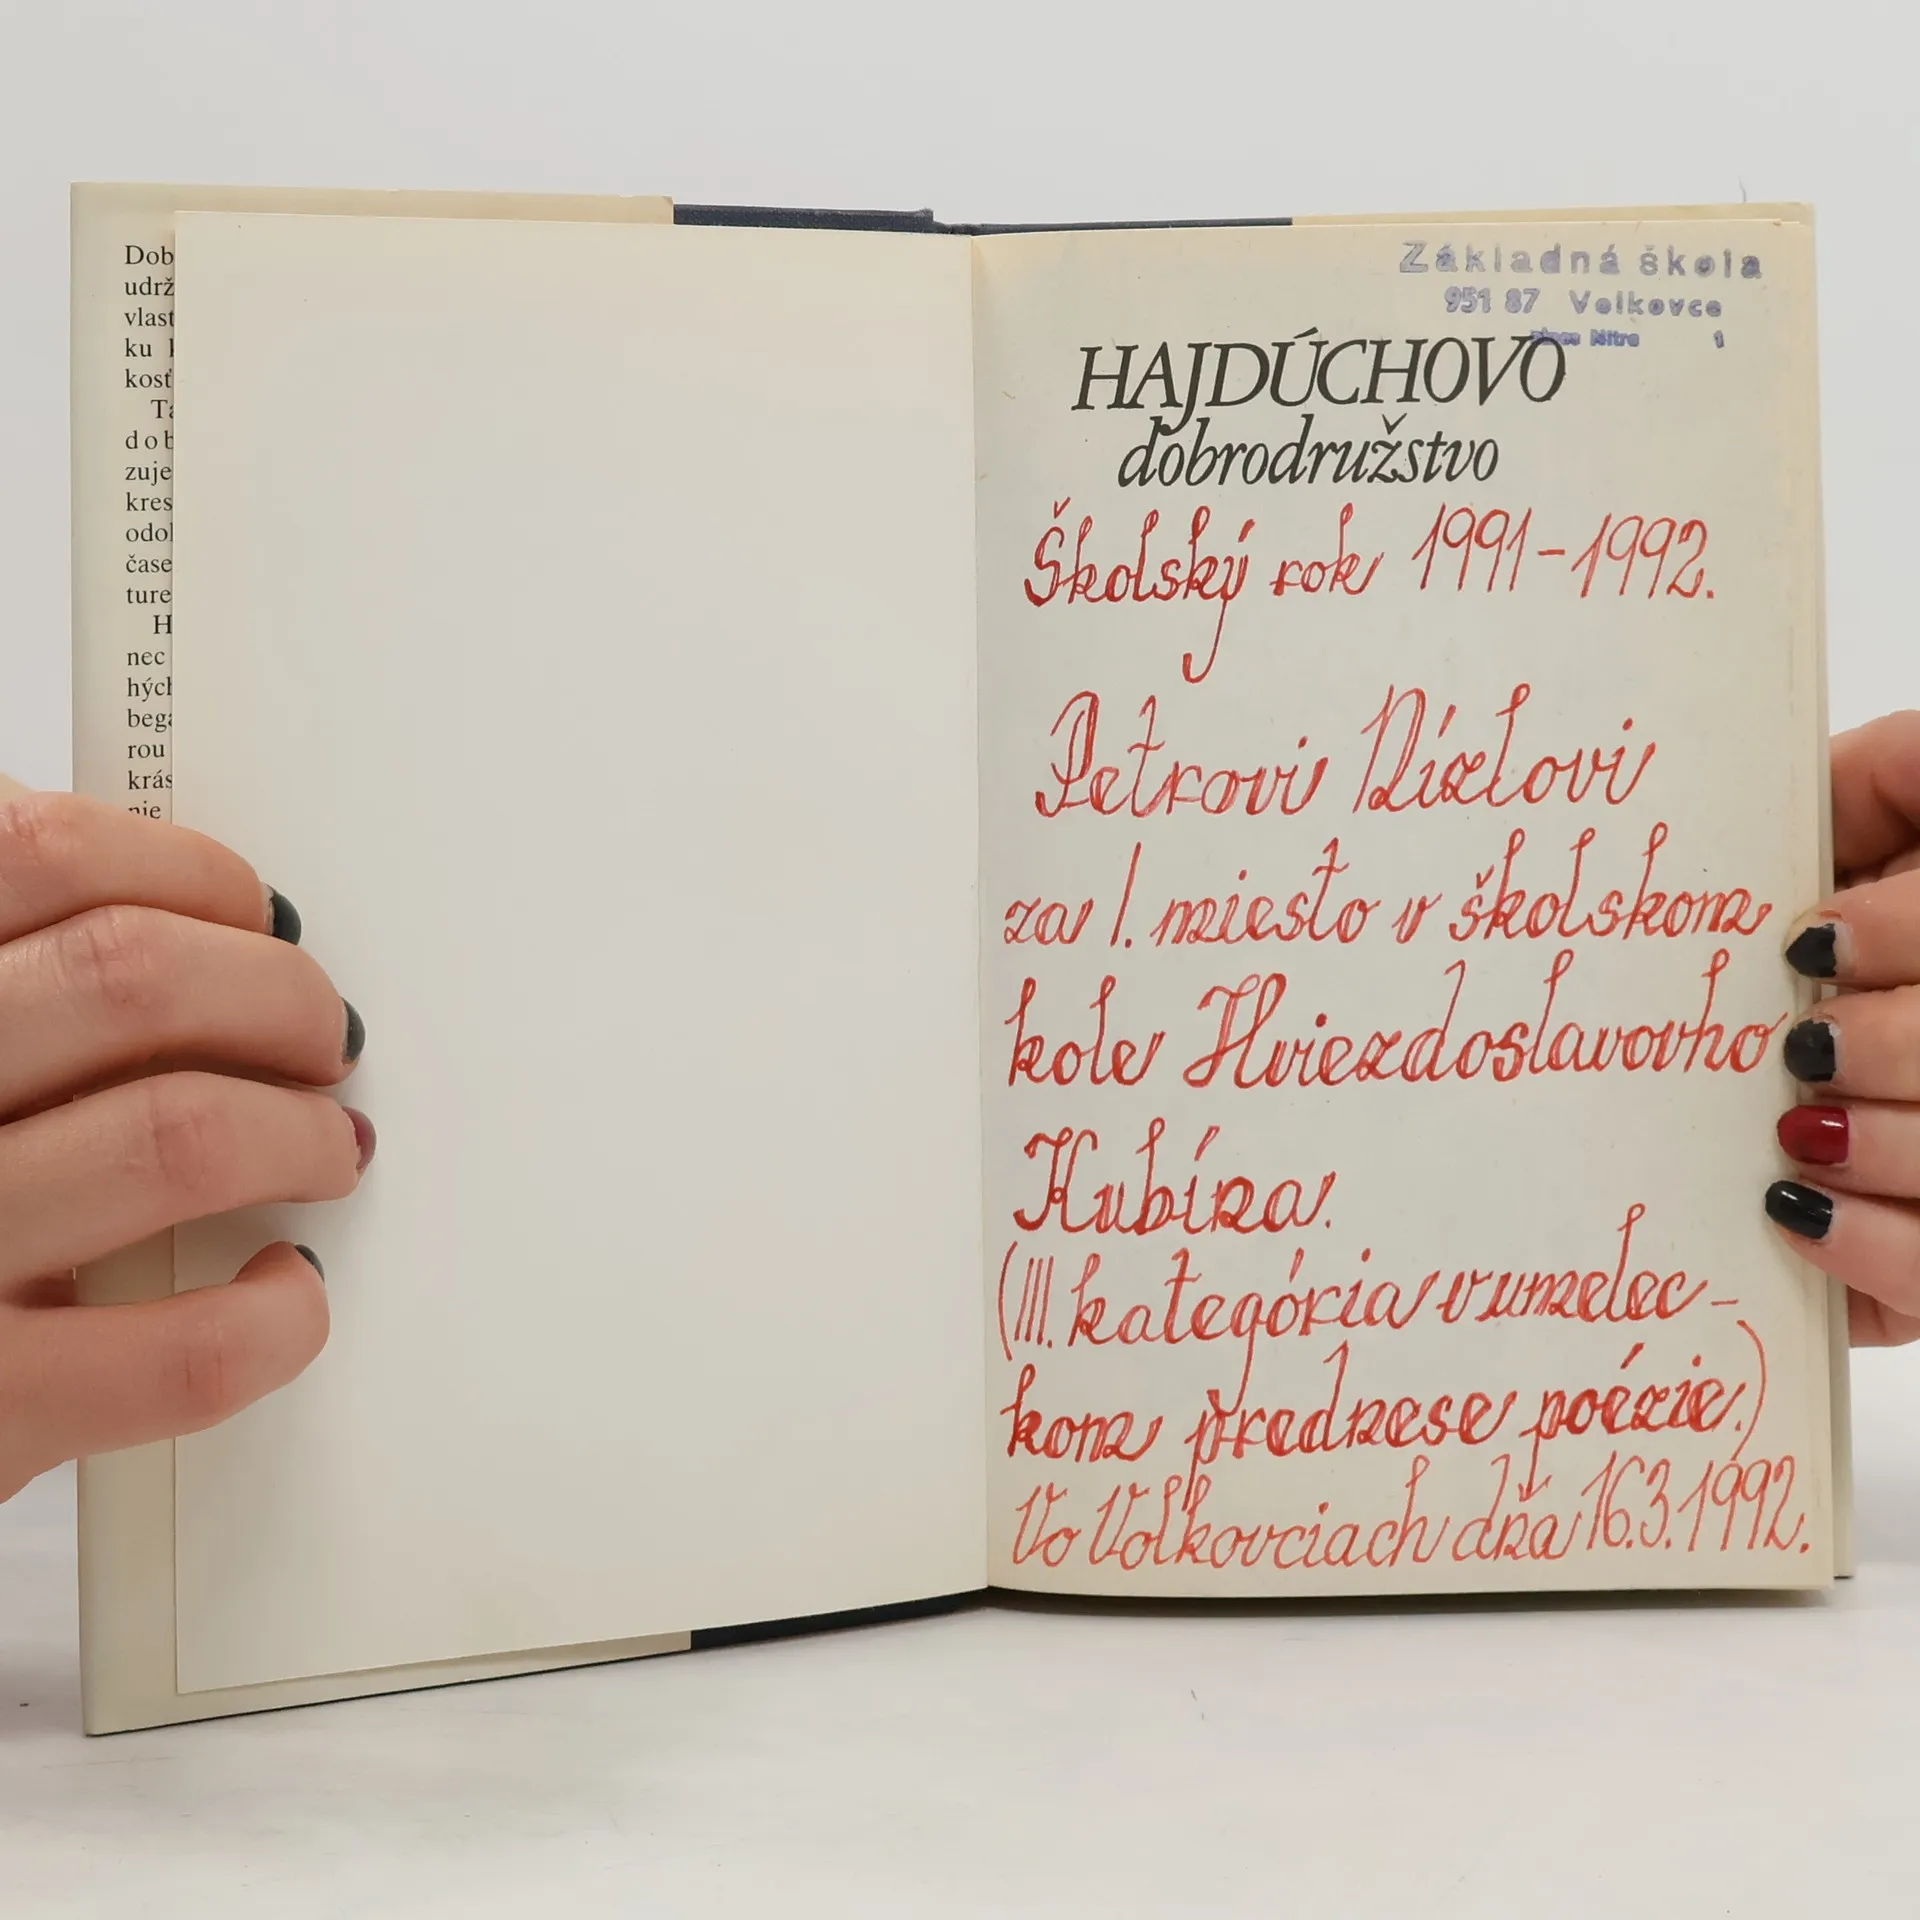 Dob
udrž
vlast
ku
kosť
Ta
dob
zuje
kres
odol
čase
ture
H
nec
hých
bega
rou
krás
nie
Základná škola
951 87 Volkovce
Nitra 1
HAJDÚCHOVO
dobrodružstvo
Školský rok 1991-1992.
Petrovi
za I. miesto v školskom
kole Hviezdoslavovho
Kubína.
(III. kategória v umelec-
kom prednese poézie.)
Vo Volkovciach dňa 16.3.1992.